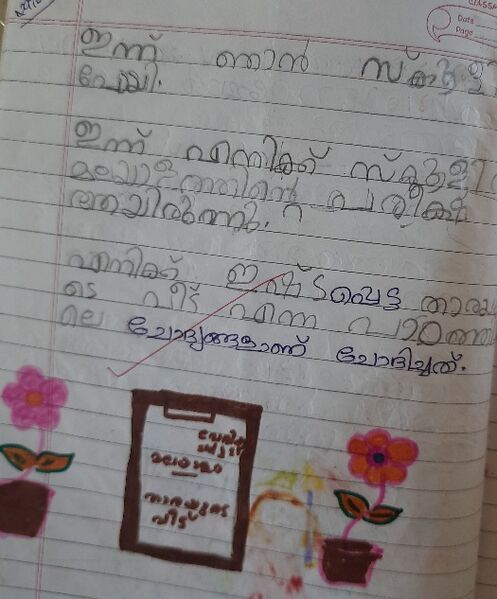 CLASS
Date
Page
ഇന്ന് ഞാൻ സ്കൂളി
പോയി.
ഇന്ന് എനിക്ക് സ്കൂളി
മലയാളത്തിന്റെ പരീക്ഷ
ആയിരുന്നു.
എനിക്ക് ഇഷ്ടപ്പെട്ട താരയു
ടെ വീട് എന്ന പാഠത്തി
ലെ ചോദ്യങ്ങളാണ് ചോദിച്ചത്.
മലയാളം
താരയുടെ
വീട്